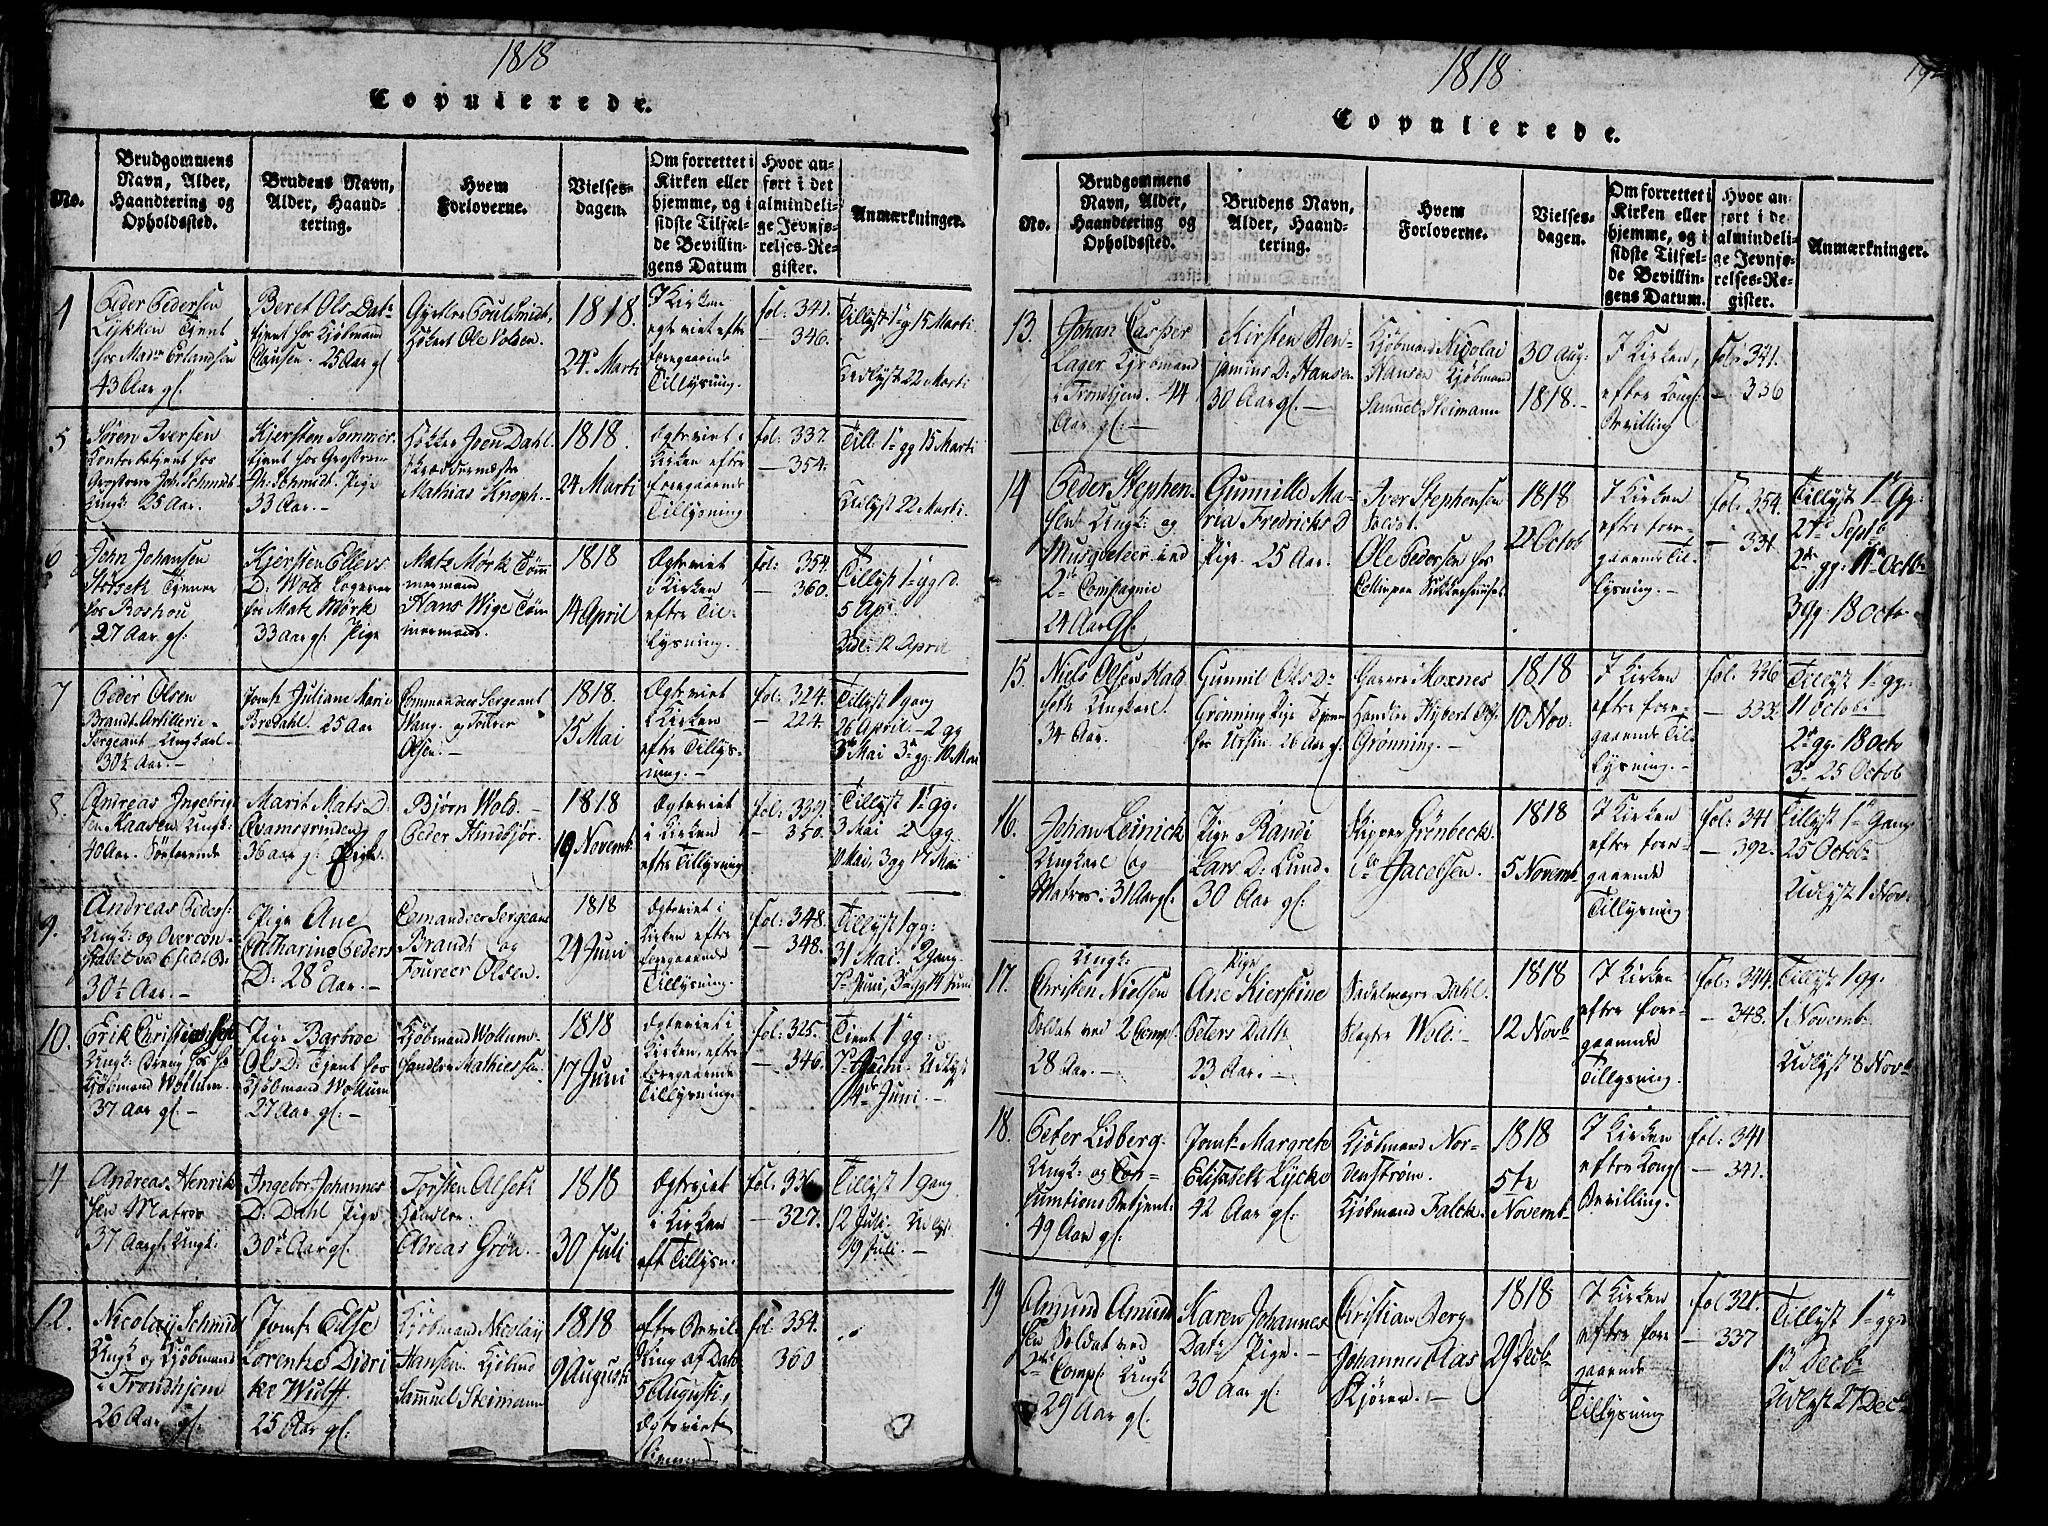 1818
Copulerede.
No.
Brudgommens
Navn, Alder,
Haandtering og
Opholdssted.
Brudens Navn,
Alder, Haand-
tering.
Hvem
Forloverne.
Vielses-
dagen.
Om forrettet i
Kirken eller
hjemme, og i
sidste Tilfæl-
de Bevillin-
gens Datum
Hvor an-
ført i det
almindeli-
ge Jevnfø-
relses-Re-
gister.
Anmærkninger.
4
Peder Pedersen
Lykken Tient
hos Mad. Erlandsen
43 Aar gl.
Beret Ols Datr
tient hos Kjøbmand
Clausen. 25 Aar gl
Ole Volden.
1818.
24. Marti
I Kirken
efter
foregaaende
Tillysning.
fol: 341.
346.
Tillyst 1 g 15 Marti
Udlyst 22 Marti
5
Søren Iversen
Kontorbetient hos
Joh: Schmidt
Ungk: 25 Aar.
Kjersten Sommer
tient hos
Schmidt. Pige
33 Aar. —
Joen Dahl
Mathias Knoph —
1818.
24 Marti
Egteviet i
Kirken efter
foregaaende
Tillysning
fol: 337.
— 354.
Till: 1 gg 15 Marti
Udlyst 22 Marti
6
John Johansen
Størsek Tiener
hos Boshou
27 Aar gl.
Kjersten Ellevs
D: Wold Logerer
hos Mats Mørk
33 aar gl Pige
Matz Mørk Tøm
mermand
Hans Wige Tøm
mermand.
1818
14 April
Egteviet
i Kirken
efter Til-
lysning.
fol: 354
— 360.
Tillyst 1 gg d.
5 Apr:
Udl: 12 April
7
Peder Olsen
Brandt Artillerie-
Sergeant — Ungkarl —
30½ Aar. —
Jomf: Juliane Marie
Bredahl. 25 Aar
Commandeer Sergeant
Wang. og Fourer
Olsen. —
1818.
15 Mai
Egteviet
i Kirken
efter Tillys-
ning. —
fol: 324.
— 224.
Tillyst 1 gang
26 April — 2 gg
3 Mai 3 gg: 10 Mai
8.
Andreas Ingebrig
sen Kaasen Ungk:
40 Aar.
Marit Mats D:
Qvamsgrinden
36 aar gl Pige
Bjørn Wold. —
Peder Hindbjør.
1818
19 Novemb
Egteviet
i Kirken
efter Tillysning
fol: 339.
— 350.
Tillyst 1 gg:
3 Mai 2 gg
10 Mai, 3 gg 17 Mai
9.
Andreas Peders:
Ungk: og
30½ Aar. —
Pige Ane
Catharine Peders
D: 28 Aar. —
Comandeer Sergeant
Brandt og
Foureer Olsen.
1818
24 Juni
Egteviet i
Kirken efter
foregaaende
Tillysning
fol: 348.
— 348.
Tillyst 1 gg:
31 Mai. 2 gang
7 Juni, 3 gg 14 Juni
10.
Erik Christiansen
Ungk: Dreng hos
Kjøbmand Wollum
37 Aar gl. —
Pige Barbroe
Ols D: Tient hos
Kjøbmand Wollum
27 Aar gl. —
Kjøbmand Wollum
Handler Mathiessen
1818
17 Juni
Egteviet i
Kirken, efter
foregaaende
Tillysning.
fol: 325.
— 346.
1 gg:
7 Juni. Udlyst
14 Juni. —
11
Andreas Henrik
sen Matros
37 Aar gl: Ungk:
Ingebor Johannes
D: Dahl Pige
30 Aar gl.
Torsten Alset
Handler
Grøn. —
1818
30 Juli
Egteviet
i Kirken
efter Tillysn.
fol: 336
— 327.
Tillyst 1 gang
12 Juli. Udlyst
19 Juli. —
12.
Nicolay Schmidt
Ungk og Kjøbmand
i Trondhjem
26 Aar gl.
Jomf: Else
Lorentze Didri
ke Wulff.
25 Aar gl:
Kjøbmand Nicolay
Hansen Kjøbmd
Sammuel Steimann
1818
9 Augusti
efter Bevil-
ling af Dato
5 Augusti,
Egteviet
fol: 354.
360
1818
Copulerede.
No.
Brudgommens
Navn, Alder,
Haandtering og
Opholdssted.
Brudens Navn,
Alder, Haand-
tering.
Hvem
Forloverne.
Vielses-
dagen.
Om forrettet i
Kirken eller
hjemme, og i
sidste Tilfæl-
de Bevillin-
gens Datum.
Hvor an-
ført i de
almindeli-
ge Jevnfø-
relses-Re-
gister.
Anmærkninger.
13.
Johan Casper
Lager Kjøbmand
i Trondhjem. 44
Aar gl. —
Kirsten Ben-
jamins D: Hansen
30 Aar gl. —
Kjøbmand Nicolai
Hansen Kjøbmand
Samuel Steimann
30 Aug:
1818. —
I Kirken,
efter Kongl:
Bevilling
fol: 341.
— 336
14
Peder Stephen-
sen Ungk: og
Musqveteer ved
2de Compagnie
24 Aar gl.
Gunnilld Ma-
ria Fredricks D
Pige. 25 Aar.
Iver Stephensen
Ole Pedersen hos
1818
22 Octob
I Kirken
efter fore-
gaaende Til-
lysning. —
fol: 354.
— 331
Tillyst 1 Gg:
27 Septb
2 gg: 11 Octb
3 gg: 18 Octo
15.
Niels Olsen Hag
seth Ungkarl.
34 Aar.
Gunnil Ols D:
Grønning Pige Tiener
hos 26 Aar gl:
Moxnes
Handler Kybert Ols:
Grønning. —
1818
10 Nov:
I Kirken
efter fore-
gaaende Til-
lysning. —
fol: 336
— 333.
Tillyst 1 gg:
11 Octob:
2 gg: 18 Octo
3 25 Octob
16.
Johan Leinick
Ungkarl og
Matros. 31 Aar gl.
Pige Randi
Lars D: Lund.
30 Aar gl.
Skipper Grønbeck
Jacobsen.
1818
5 Novemb
I Kirken
efter fore-
gaaende
Tillysning
fol: 341
— 392.
Tillyst 1 Gang
25 Octob:
Udlyst 1 Nov:
17.
Ungk:
Christen Nielsen
Soldat ved 2 Comp
28 Aar. —
Pige
Ane Kierstine
Peters Datr
23 Aar. —
Sadelmager Dahl.
Slagter Wold.
1818
12 Novb
I Kirken
efter fore-
gaaende
Tillysning.
fol: 344.
— 348.
Tillyst 1 gg:
1 Novemb
Udlyst 8 Novb
18.
Peter Lidberg.
Ungk: og Con-
sumtions Betjent.
49 Aar gl.
Jomf: Margrete
Elisabeth Lycke
42 Aar gl.
Kjøbmand Nor-
denstrøm.
Kjøbmand Falck.
1818
5te
Novemb
I Kirken
efter Kongl
Bevilling.
fol: 341
— 341.
19
Amund Amund
sen Soldat ved
2det Comp: Ungk:
29 Aar gl.
Karen Johannes
Datr Pige.
30 Aar gl.
Christian Berg
Johannes Aas
Kjører. —
1818
29 Decb
I Kirken
efter fore
gaaende
Tillysning
fol 321.
— 337
Tillyst 1 gg:
13 Decb
Udlyst 27 Dec: